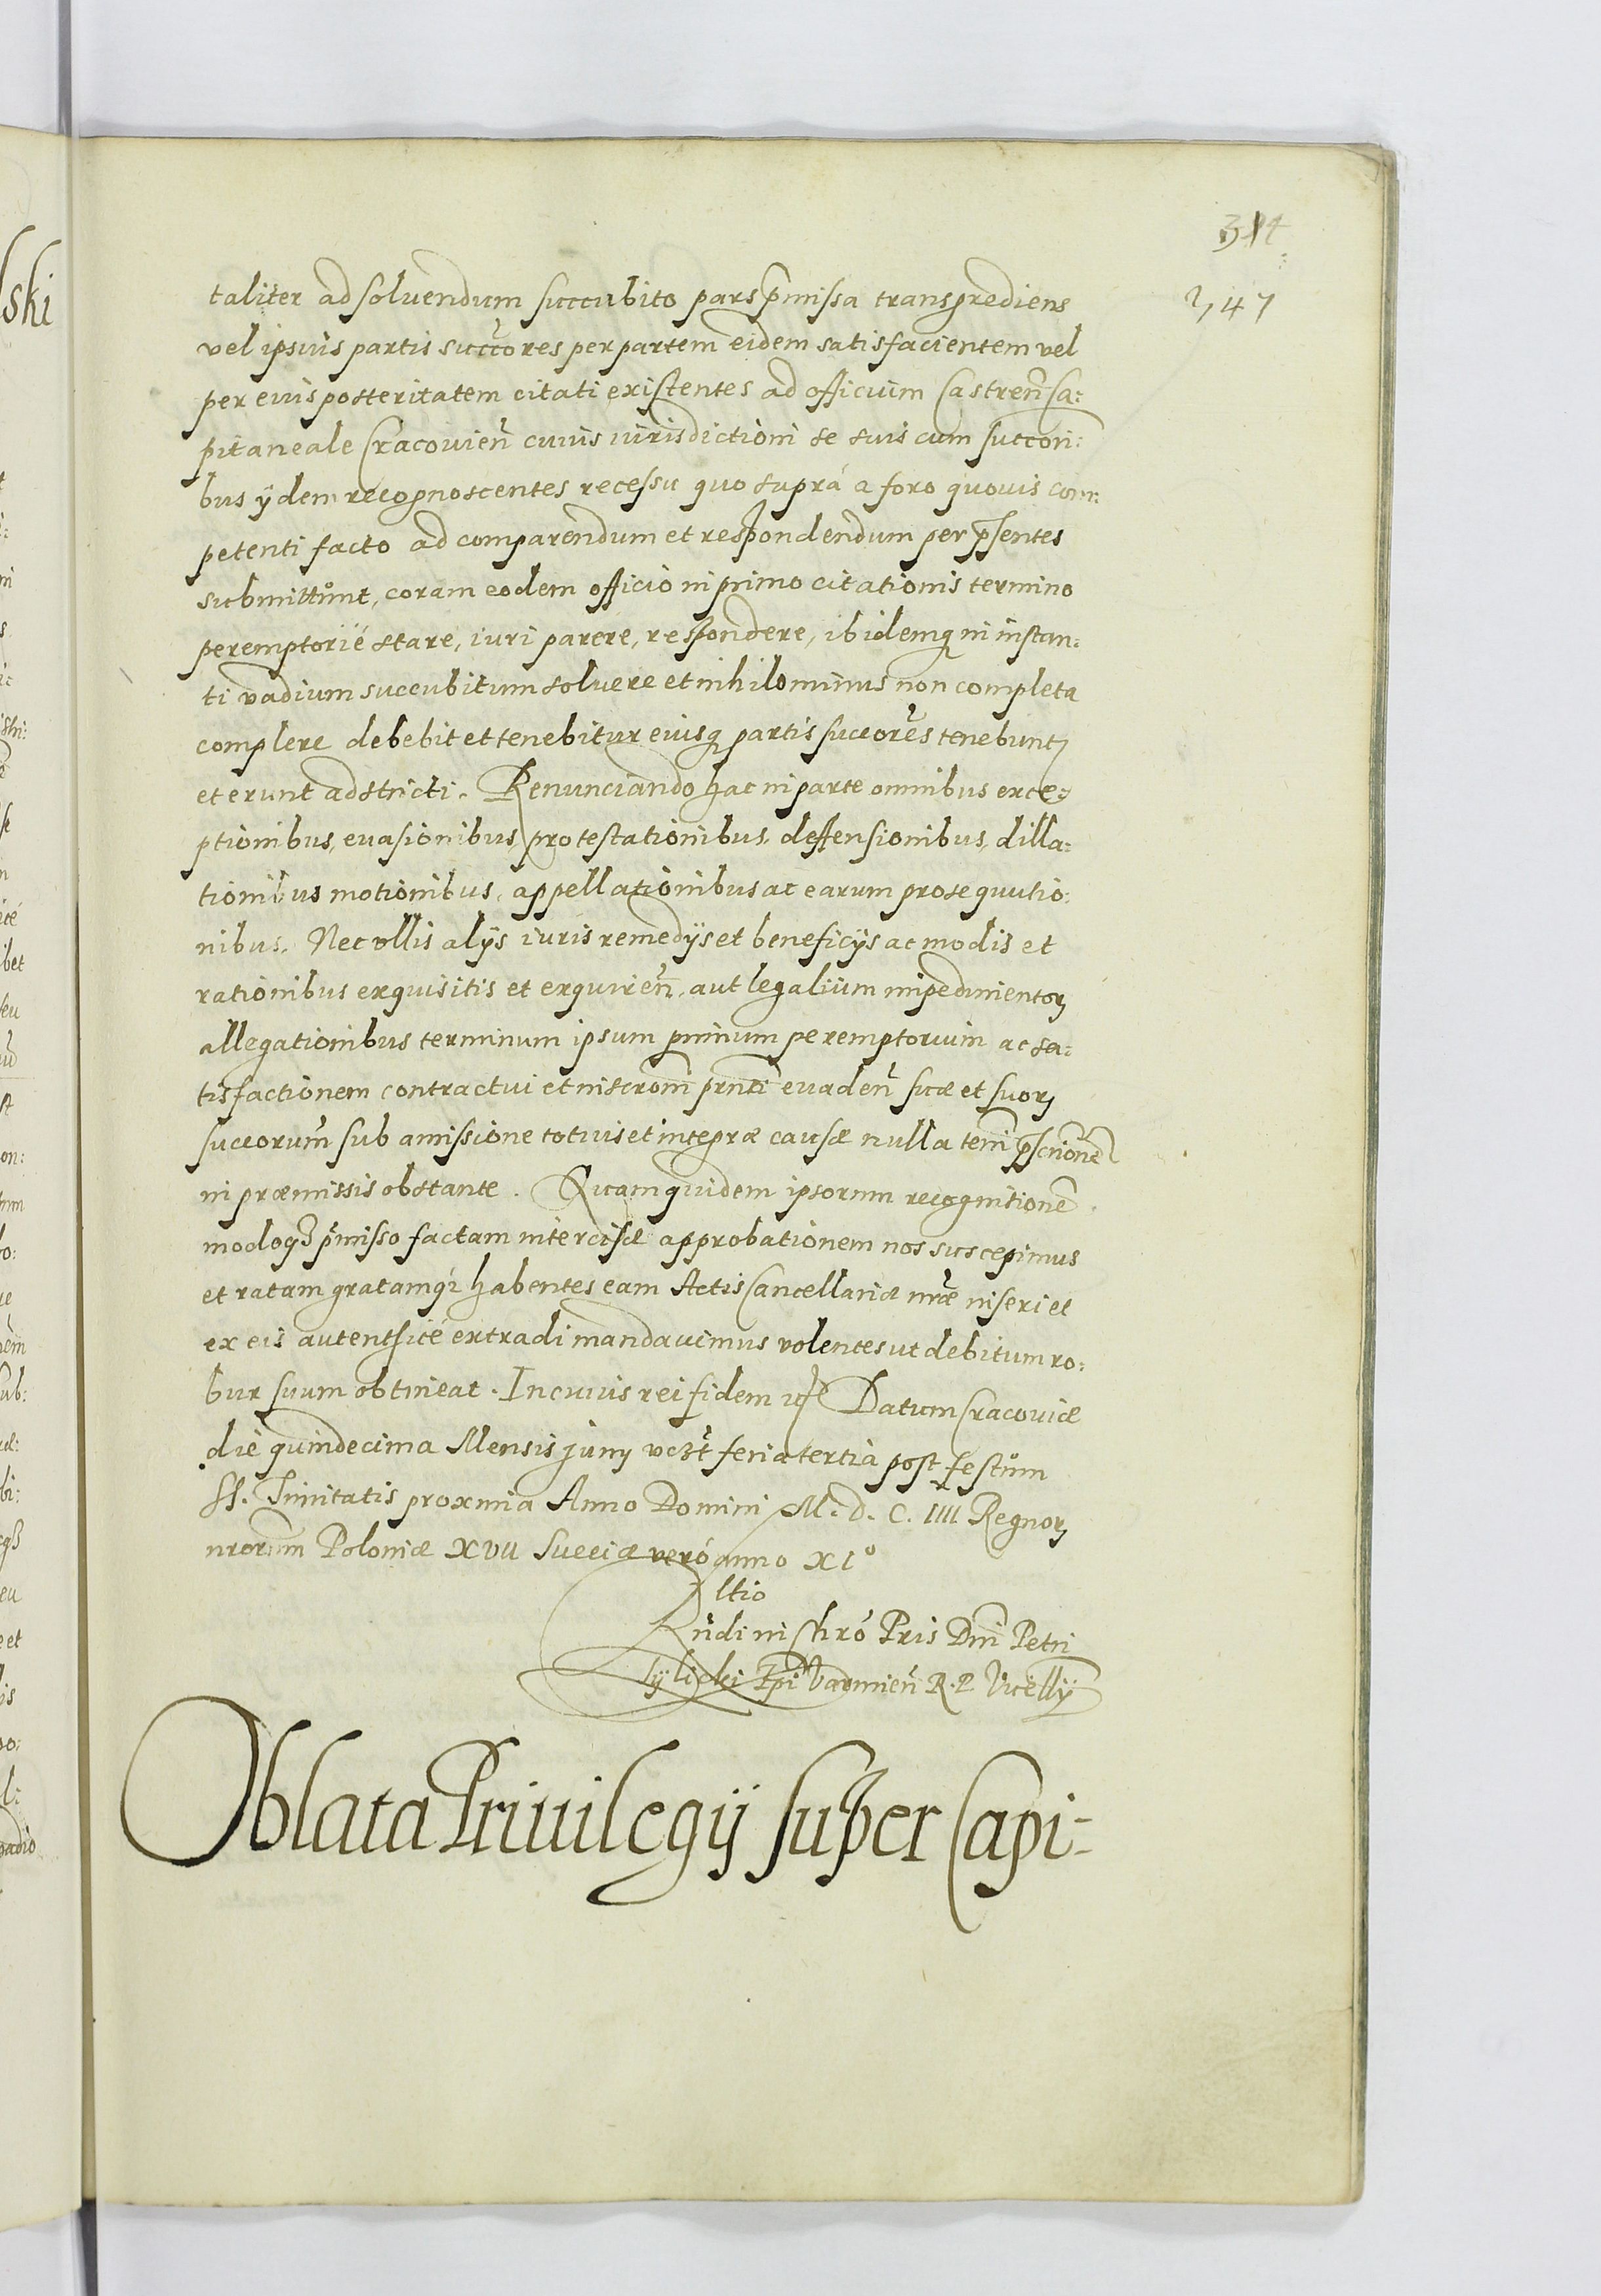 314
347
taliter ad soluendum succubito pars p̃missa transgrediens
vel ipsius partis succ̃ores per partem eidem satisfacientem vel
per eius posteritatem citati existentes ad officium Castreñ Ca:
pitaneale Cracouieñ cuius iurisdictioni se suis cum succori:
bus ÿdem recognoscentes recessu quo suprà a foro quouis com:
petenti facto ad comparendum et respondendum per p̃sentes
submittunt, coram eodem officio in primo citationis termino
peremptoriè stare, iuri parere, respondere, ibidemq in instan:
ti vadium succubitum soluere et nihilominus non completa
complere debebit et tenebitur eiusq partis succores tenebunt
et erunt adstricti. Renunciando hac in parte omnibus exce:
ptionibus, euasionibus, protestationibus, deffensionibus, dilla:
tionibus motionibus, appellationibus ac earum prosequutio:
nibus. Nec vllis alijs iuris remedijs et beneficijs ac modis et
rationibus exquisitis et exquireñ, aut legalium impedimentor
allegationibus terminum ipsum primum peremptorium ac sa:
tisfactionem contractui et inscrom̃ prnti euadeñ suæ et suor
succorum̃ sub amissione totius et integræ causæ nulla teri p̃scrione
in præmissis obstante. Quam quidem ipsorum recognitionẽ
modoq p̃misso factam intercisæ approbationem nos suscepimus
et ratam gratamq habentes eam Actis Cancellariæ nr̃æ inseri et
ex eis autenthicè extradi mandauimus volentes ut debitum ro:
bur suum obtineat. In cuius rei fidem Datum Cracouiæ
die quindecima Mensis junÿ vczt feria tertia post festum
SS. Trinitatis proxima Anno Domini M. d. C. IIII Regnor
nrorum Poloniæ XVII Sueciæ verò anno XIº
Rltio
Rñdi in Chrõ Pris Dñi Petri
Tÿlicki Ep̃i Varmieñ R. P. Vicellÿ
Oblata Priuilegij super Capi-